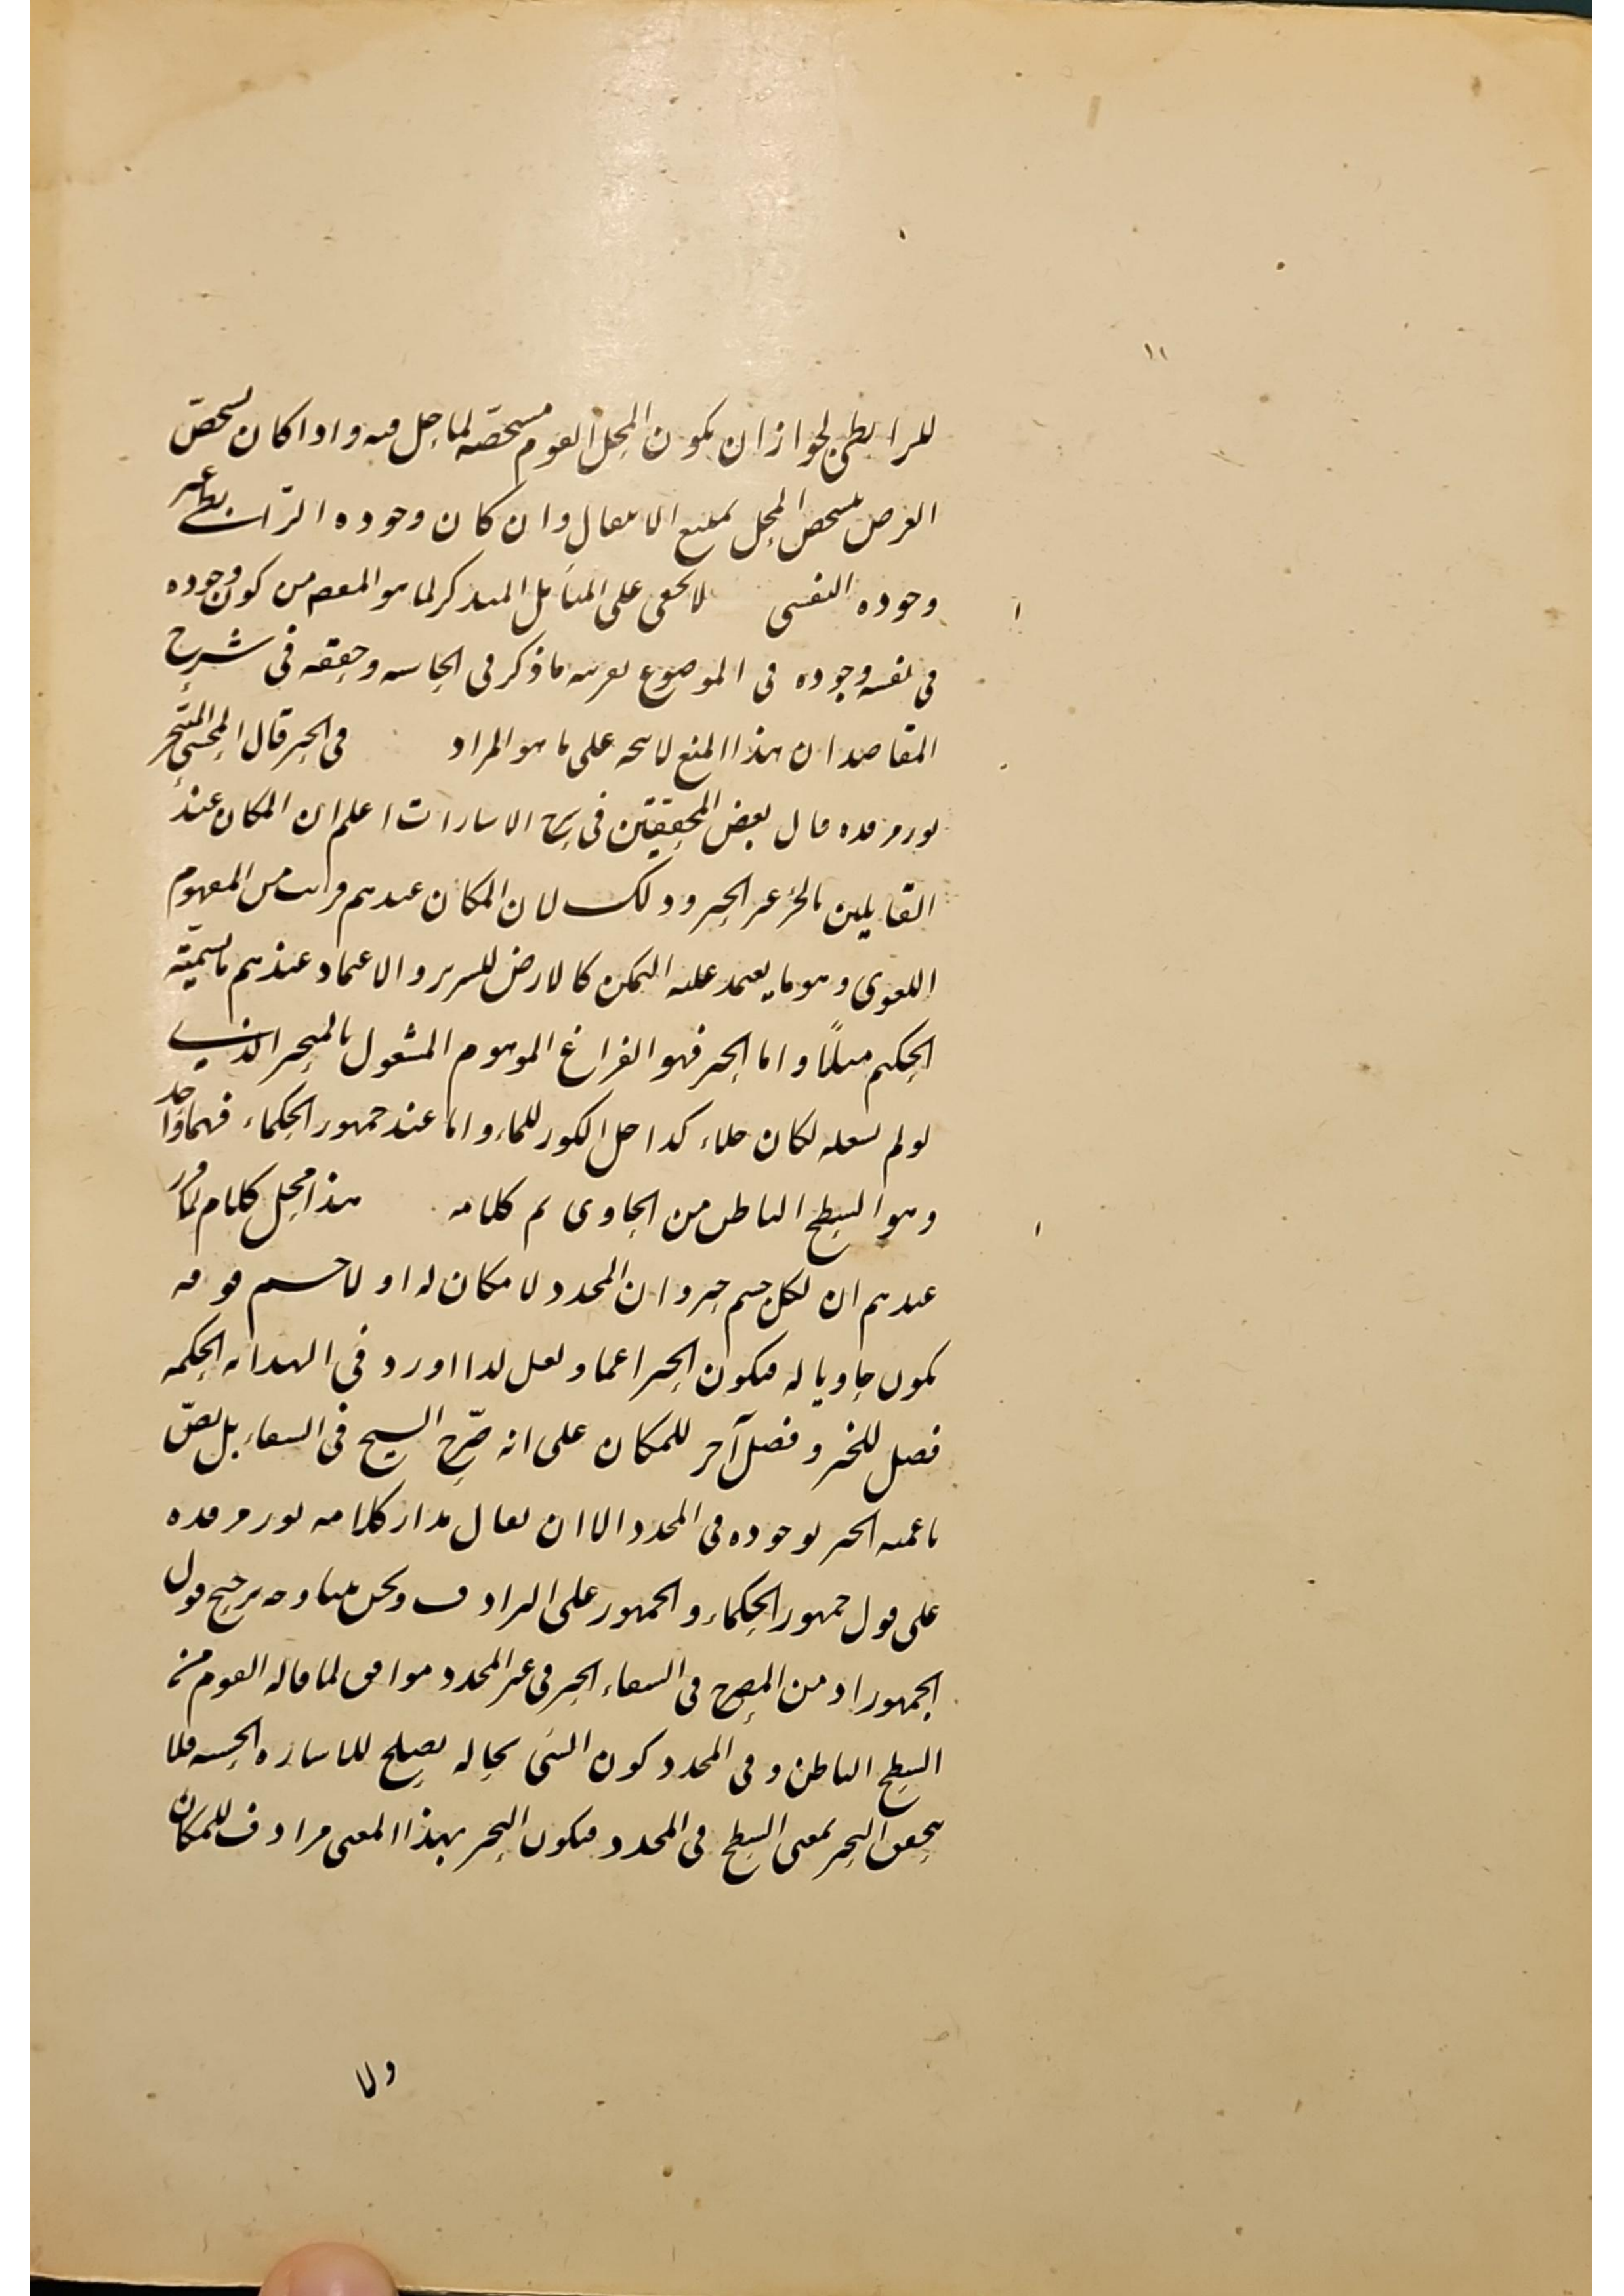 ١١
للرابطي لجواز ان يكون المحل المقوم مشخصه لما حل فيه واذا كان تشخص
العرض بتشخص المحل يمتنع الانتقال وان كان وجوده الرابطي غير
وجوده النفسي لا يخفى على المتأمل المتذكر لما هو المقصود من كون وجوده
في نفسه وجوده في الموضوع بقرينه ما ذكر في الحاشيه وحققه في شرح
المقاصد ان هذا المنع لا يتجه على ما هو المراد في الحيز قال المحشي المتبحر
نور مرقده قال بعض المحققين في شرح الاشارات اعلم ان المكان عند
القايلين بالجزء غير الحيز وذلك لان المكان عندهم قريب من المفهوم
اللغوي وهو ما يعتمد عليه المتمكن كالارض للسرير والاعتماد عندهم ما يسميه
الحكيم ميلًا واما الحيز فهو الفراغ الموهوم المشغول بالمتحيز الذي
لو لم يشغله لكان خلاء كداخل الكوز للماء واما عند جمهور الحكماء فهما واحد
وهو السطح الباطن من الحاوي تم كلامه هذا محل كلام لما تقرر
عندهم ان لكل جسم حيز وان المحدد لا مكان له اذ لا جسم فوقه
يكون حاويا له فيكون الحيز اعم ولعل لذا اورد في الهدايه الحكمه
فصل للحيز وفصل آخر للمكان على انه صرّح الشيخ في الشفاء بل نصّ
باعميه الحيز بوجوده في المحدد الا ان يقال مدار كلامه نور مرقده
على قول جمهور الحكماء والجمهور على الترادف ونحن بينا وجه ترجيح قول
الجمهور اذ من المصرح في الشفاء الحيز في غير المحدد موافق لما قاله القوم من
السطح الباطن وفي المحدد كون الشي بحاله يصلح للاشاره الحسيه فلا
يتحقق التحيز بمعنى السطح في المحدد فيكون التحيز بهذا المعنى مرادف للمكان
ولا